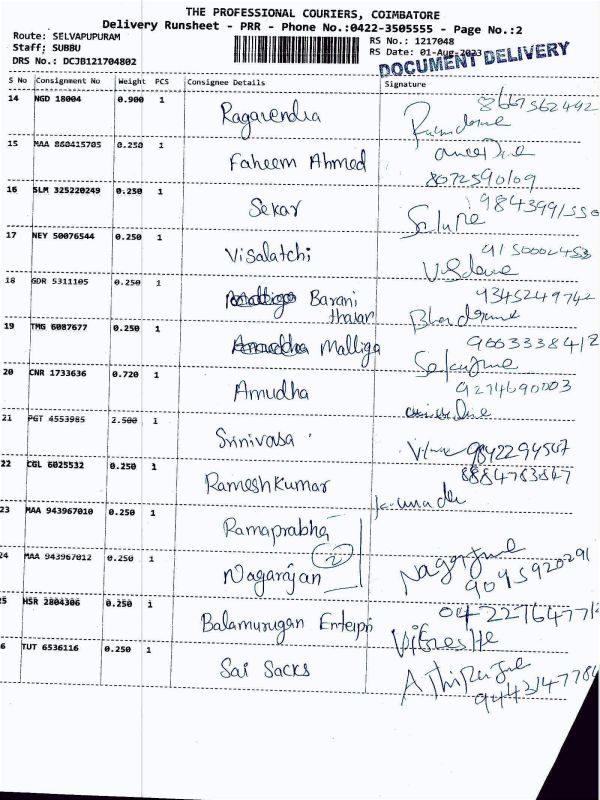 THE PROFESSIONAL COURIERS, COIMBATORE
Delivery Runsheet - PRR - Phone No.:0422-3505555 - Page No.:2
Route: SELVAPUPURAM
RS No.: 1217048
Staff: SUBBU
RS Date: 01-Aug-2023
DRS No.: DCJB121704802
DOCUMENT DELIVERY
S No Consignment No Weight PCS Consignee Details Signature
14 NGD 18004 0.900 1 Ragavendra 8667562492
15 MAA 860415705 0.250 1 Faheem Ahmed
8072590109
16 SLM 325220249 0.250 1 Sekar
17 NEY 50076544 0.250 1 Visalatchi 9150002453
18 GDR 5311105 0.250 1 Barani 9345249742
tharan
19 TMG 6087677 0.250 1 Malliga 9003338412
20 CNR 1733636 0.720 1 Amudha
21 PGT 4553985 2.500 1 Srinivasa 9842294567
22 CGL 6025532 0.250 1 Rameshkumar
23 MAA 943967010 0.250 1 Ramaprabha
2
24 MAA 943967012 0.250 1 Nagarajan 9095920291
5 HSR 2804306 0.250 1 Balamurugan Enterpri
6 TUT 6536116 0.250 1 Sai Sacks